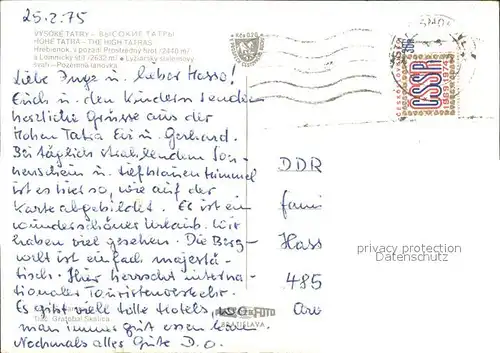 25.2.75
VYSOKÉ TATRY - ВЫСОКИЕ ТАТРЫ
HOHE TATRA - THE HIGH TATRAS
Hrebienok, v pozadí Prostredný hrot (2440 m)
a Lomnický štít (2632 m) • Lyžiarsky slalomový
svah - Pozemná lanovka
Kčs 0,20
ČSSR
1969 1974
Liebe Inge u. lieber Hasso!
Euch u. den Kindern senden
herzliche Grüsse aus der
Hohen Tatra Evi u. Gerhard.
Bei täglich strahlendem Son-
nenschein u. tiefblauem Himmel
ist es hier so, wie auf der
Karte abgebildet. Es ist ein
wunderschöner Urlaub. Wir
haben viel gesehen. Die Berg-
welt ist einfach majestä-
tisch. Hier herrscht interna-
tionaler Touristenverkehr.
Es gibt viele tolle Hotels, wo
man immer gut essen kann.
Nochmals alles Gute D. O.
DDR
Fami
Hass
485
privacy protection
Datenschutz
FOTO
BRATISLAVA
Tlač: Gratobal Skalica